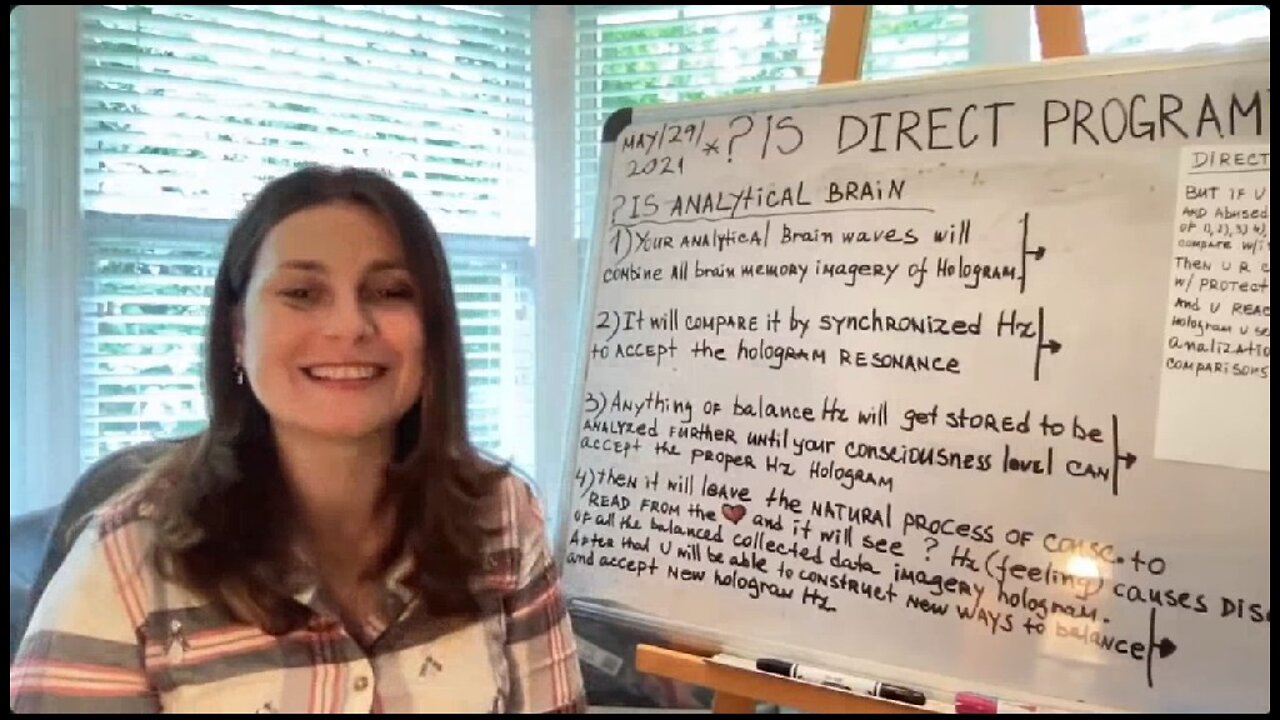 MAY/29/
2021
*? IS DIRECT PROGRAM
? IS ANALYTICAL BRAIN
1) YOUR ANALYTICAL Brain waves will
combine All brain memory imagery of Hologram.
2) It will COMPARE it by SYNCHRONIZED Hz
to ACCEPT the hologram RESONANCE
3) Anything OF balance Hz will get STORED to be
ANALYZED FURTHER until your consciousness level CAN
ACCEPT the PROPER Hz Hologram
4) then it will leave the NATURAL process of consc. to
READ FROM the ❤ and it will see ? Hz (feeling) causes DIS
of all the balanced collected data imagery hologram.
After that U will be able to construct NEW WAYS to balance
and accept new hologram Hz.
DIRECT
BUT IF U
AND Abused
OF 1), 2), 3) 4),
COMPARE W/
Then U R
W/ PROTECT
And U REAC
Hologram U se
analizatio
COMPARISONS